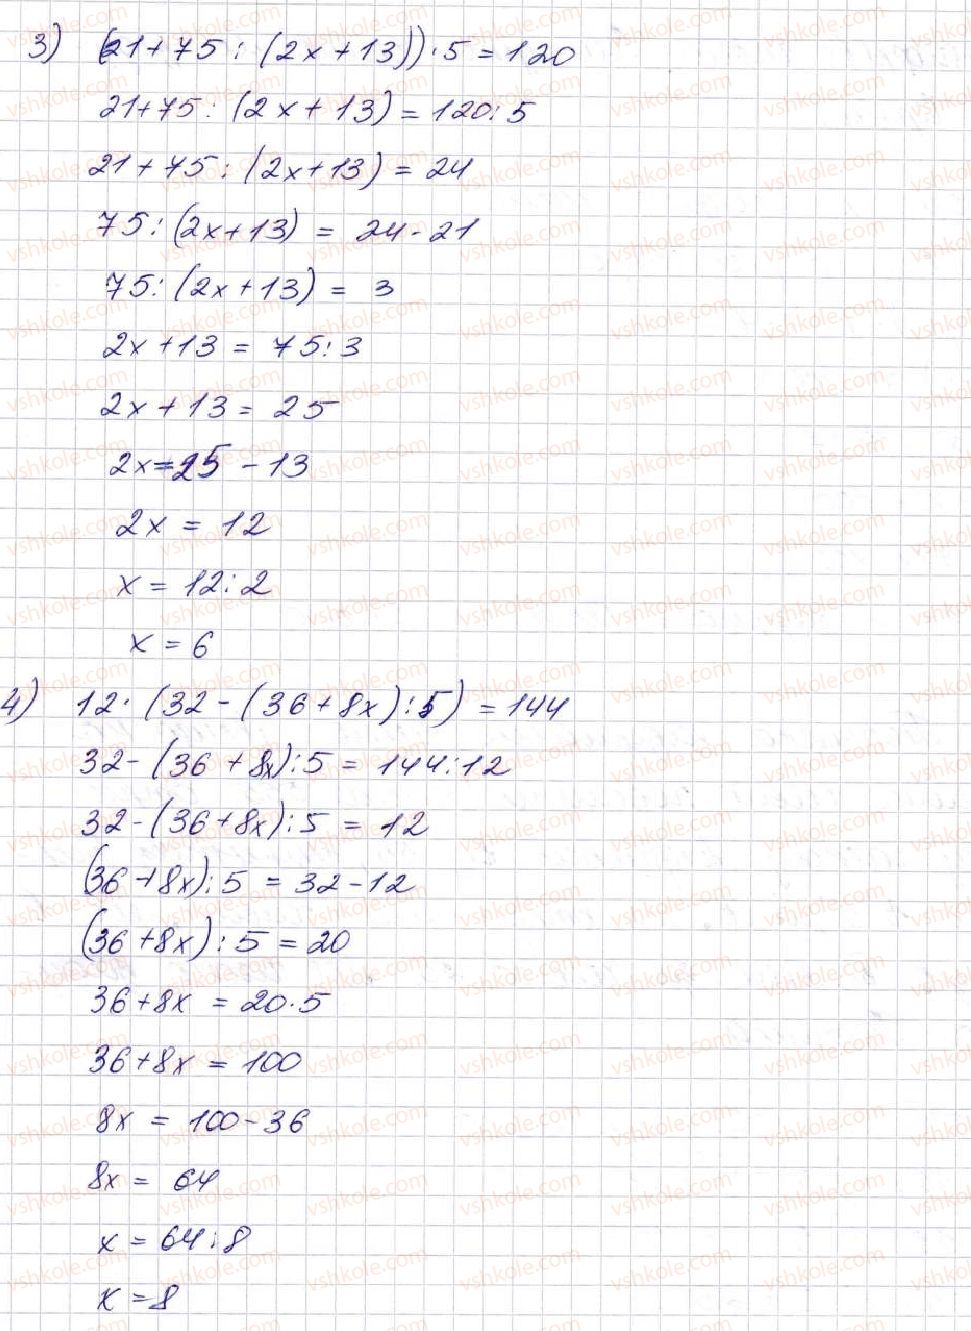 3) (21+75:(2x+13))·5=120
21+75:(2x+13)=120:5
21+75:(2x+13)=24
75:(2x+13)=24-21
75:(2x+13)=3
2x+13=75:3
2x+13=25
2x=25-13
2x=12
x=12:2
x=6
4) 12·(32-(36+8x):5)=144
32-(36+8x):5=144:12
32-(36+8x):5=12
(36+8x):5=32-12
(36+8x):5=20
36+8x=20·5
36+8x=100
8x=100-36
8x=64
x=64:8
x=8